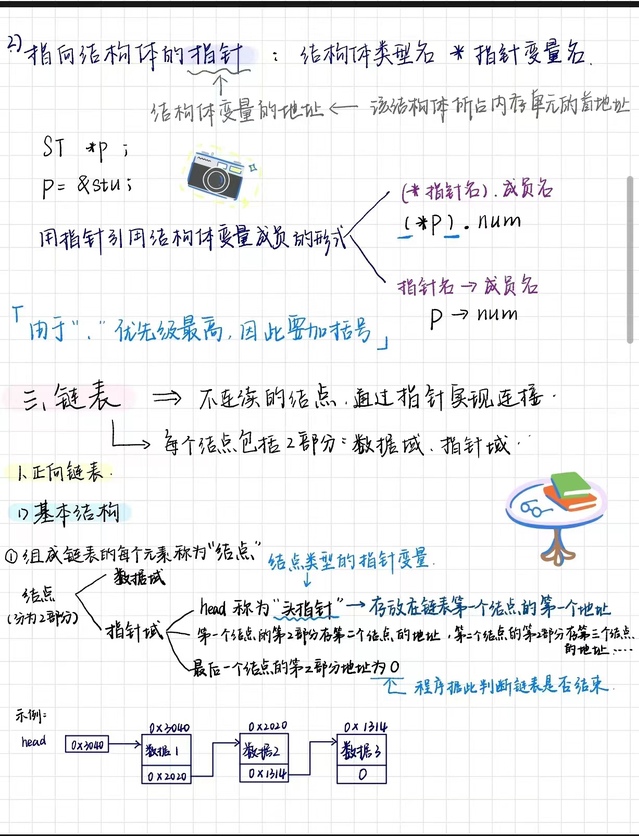 2) 指向结构体的指针 : 结构体类型名 * 指针变量名.
结构体变量的地址 ← 该结构体所占内存单元的首地址
ST *p ;
p= &stu ;
(*指针名).成员名
(*p).num
用指针引用结构体变量成员的形式
指针名→成员名
p→num
「由于"."优先级最高,因此要加括号」
三、链表 ⇒ 不连续的结点,通过指针实现连接.
每个结点包括2部分:数据域、指针域.
1、正向链表.
1)基本结构
①组成链表的每个元素称为"结点"
结点类型的指针变量
结点
(分为2部分)
数据域
指针域
head 称为"头指针" → 存放在链表第一个结点的第一个地址
第一个结点的第2部分存第二个结点的地址,第二个结点的第2部分存第三个结点
的地址......
最后一个结点的第2部分地址为0
程序据此判断链表是否结束.
示例:
0x3040 0x2020 0x1314
head 0x3040 数据1 数据2 数据3
0x2020 0x1314 0